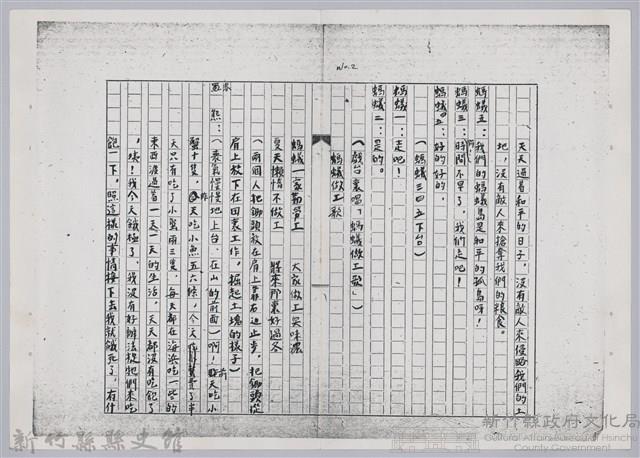 No.2
天天過着和平的日子，沒有敵人來侵略我們的土
地，沒有敵人來搶奪我們的糧食。
螞蟻五：我們的螞蟻島是和平的孤島呀！
螞蟻三：時間不早了，我們走吧！
螞蟻四五：好的好的。
（螞蟻三四五下台）
螞蟻一：走吧！
螞蟻二：是的。
（戲台裏唱「螞蟻做工歌」）
螞蟻做工歌
螞蟻一家勤勞工　大家做工笑味濃
夏天懶惰不做工　將來那裏好過冬
（兩個人把鋤頭放在肩上
肩上放下在田裏工作，掘起土塊的樣子）
熊：（裹氣慢慢地上台，在山的前面）啊！前天吃小
蟹十隻，昨天吃小魚五六條，今天
天只有吃了小蟹兩三隻，每天都在海浜吃一些的
東西渡過着一天一天的生活，天天都沒有吃飽了
，唉！我今天餓極了，我沒有好辦法捉牠們來吃
飽一下。照這樣的事情接下去我就餓死了，有什
新竹縣縣史館
新竹縣政府文化局
Cultural Affairs Bureau of Hsinchu
County Government